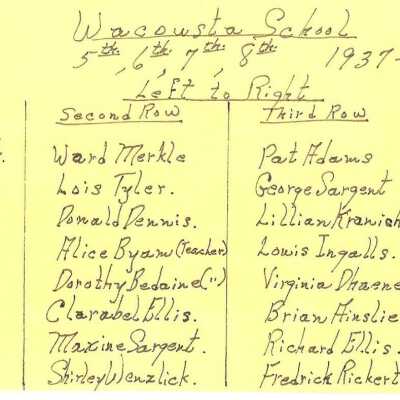 Wacousta School
5th, 6th, 7th, 8th 1937-
Left to Right
Second Row Third Row
Ward Merkle Pat Adams
Lois Tyler. George Sargent
Donald Dennis. Lillian Kranich
Alice Byam (Teacher) Louis Ingalls.
Dorothy Bedaine (") Virginia Dhaene
Clarabel Ellis. Brian Ainslie
Maxine Sargent. Richard Ellis.
Shirley Wenzlick. Fredrick Rickert